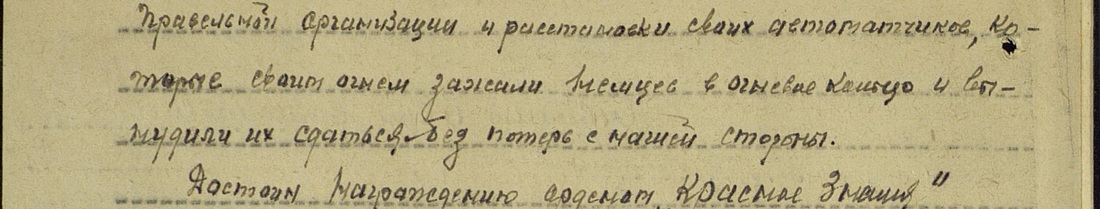 правельной организации и расстановки своих автоматчиков, ко-
торые своим огнем зажали немцев в огневое кольцо и вы-
нудили их сдаться без потерь с нашей стороны.
Достоин награждению орденом „Красное Знамя"